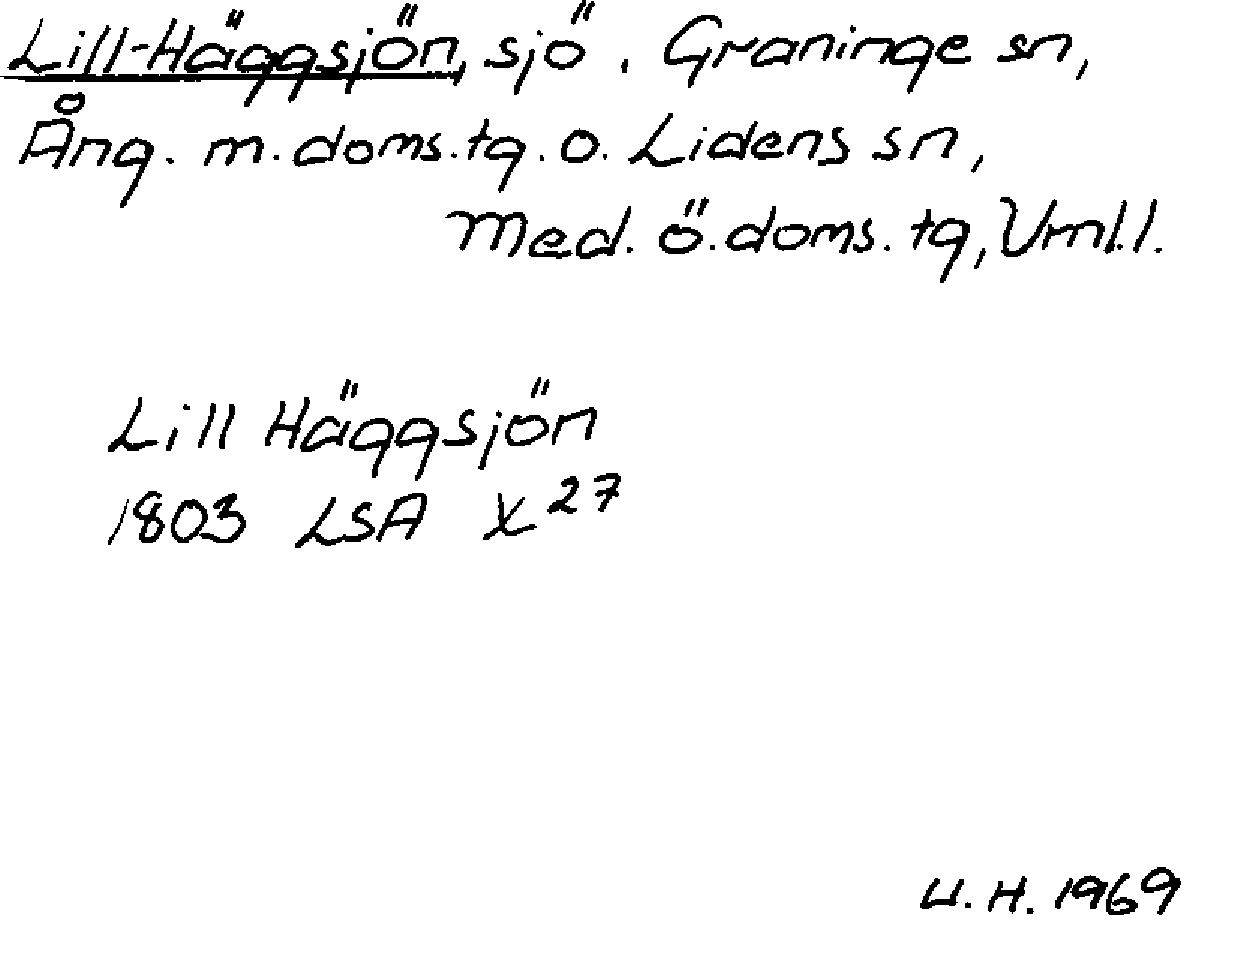 Lill-Häggsjön, sjö. Graninge sn,
Ång. m. doms. tg. o. Lidens sn,
Med. ö. doms. tg, Vrnl. l.
Lill Häggsjön
1803 LSA X 27
U. H. 1969